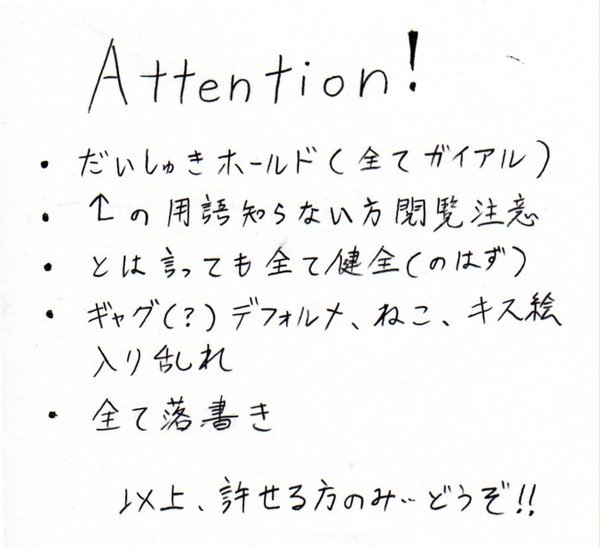 Attention!
・だいしゅきホールド(全てガイアル)
・↑の用語知らない方閲覧注意
・とは言っても全て健全(のはず)
・ギャグ(?)デフォルメ、ねこ、キス絵
入り乱れ
・全て落書き
以上、許せる方のみ…どうぞ!!